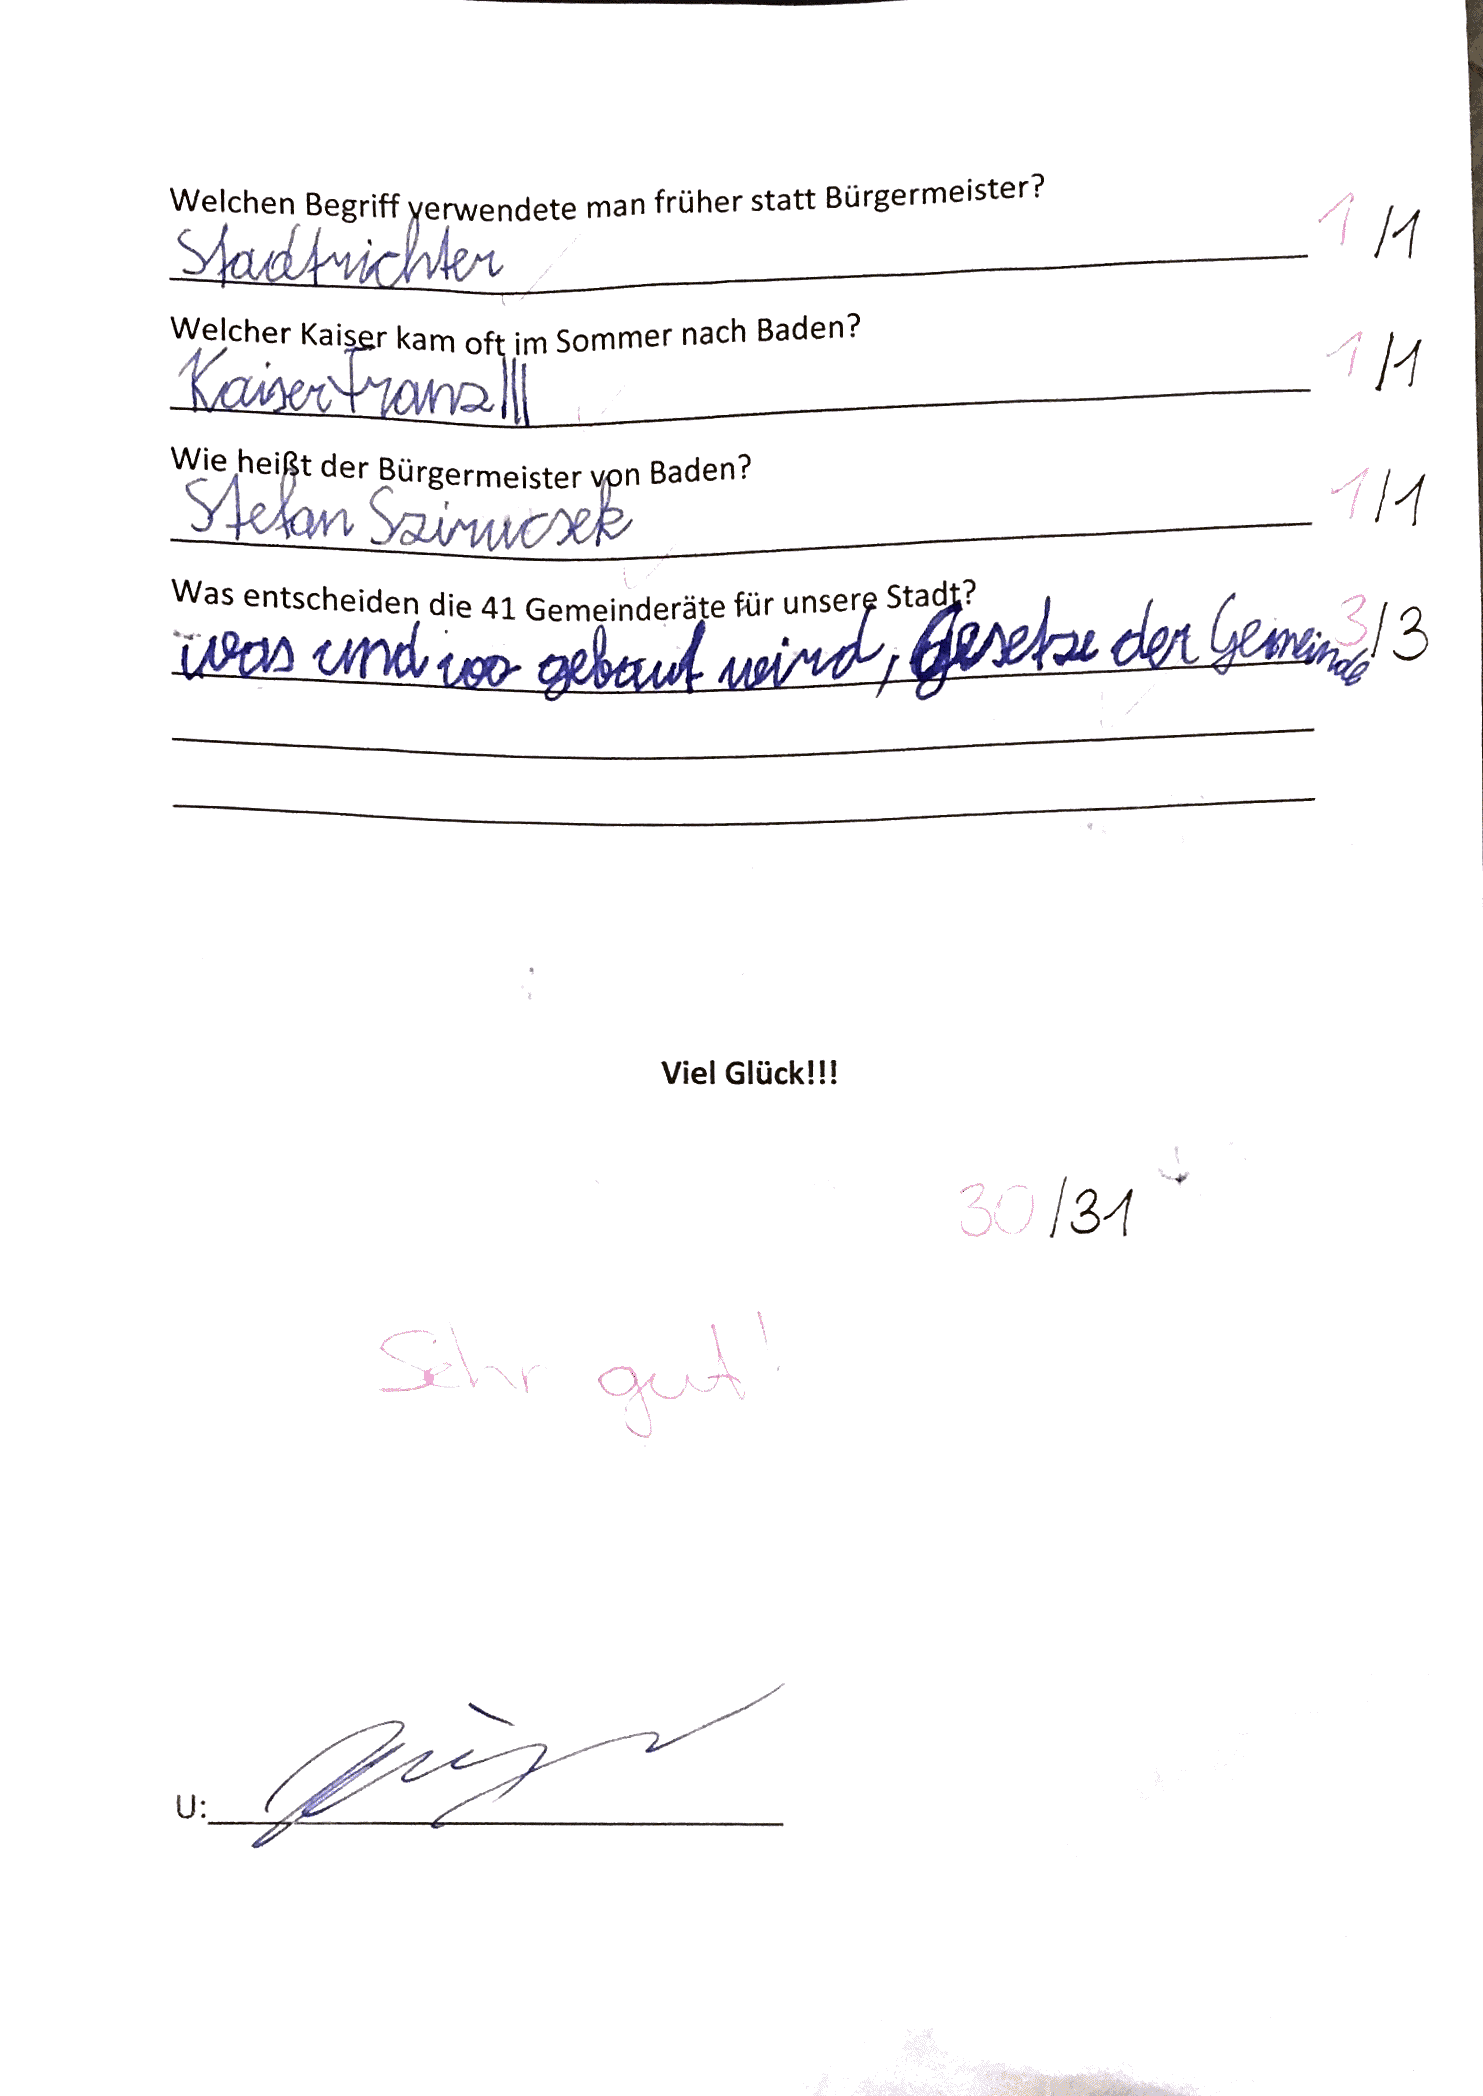 Welchen Begriff verwendete man früher statt Bürgermeister?
Stadtrichter 1/1
Welcher Kaiser kam oft im Sommer nach Baden?
Kaiser Franz III 1/1
Wie heißt der Bürgermeister von Baden?
Stefan Szirucsek 1/1
Was entscheiden die 41 Gemeinderäte für unsere Stadt?
was und wo gebaut wird, Gesetze der Gemeinde 3/3
Viel Glück!!!
30/31
Sehr gut!
U: